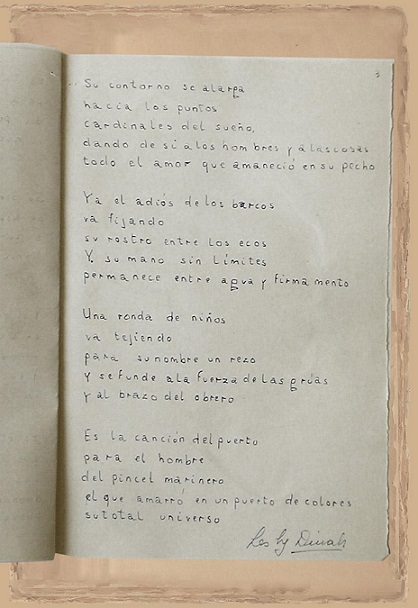 Su contorno se alarga
hacia los puntos
cardinales del sueño,
dando de si a los hombres y a las cosas
todo el amor que amaneció en su pecho
Ya el adiós de los barcos
va fijando
su rostro entre los ecos
Y su mano sin límites
permanece entre agua y firmamento
Una ronda de niños
va tejiendo
para su nombre un rezo
y se funde a la fuerza de las grúas
y al brazo del obrero
Es la canción del puerto
para el hombre
del pincel marinero
el que amarró en un puerto de colores
su total universo